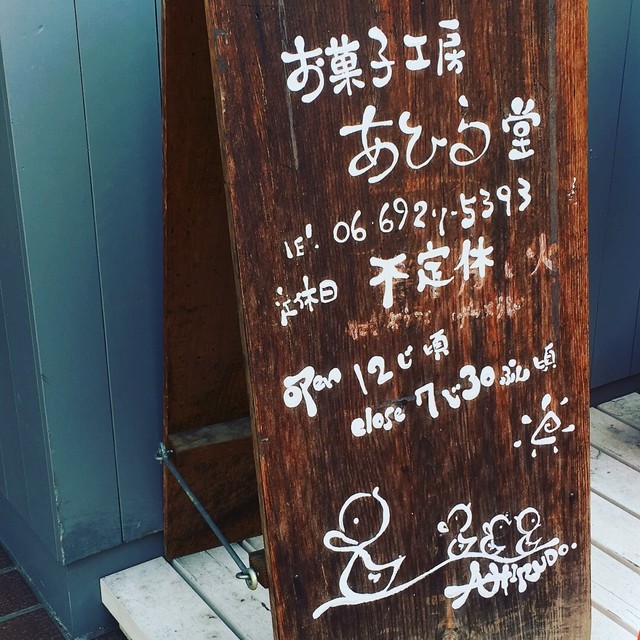 お菓子工房
あひる堂
TEL. 06-6927-5393
定休日 不定休、火
open 12じ頃
close 7じ30ぷん頃
AHIRUDO.